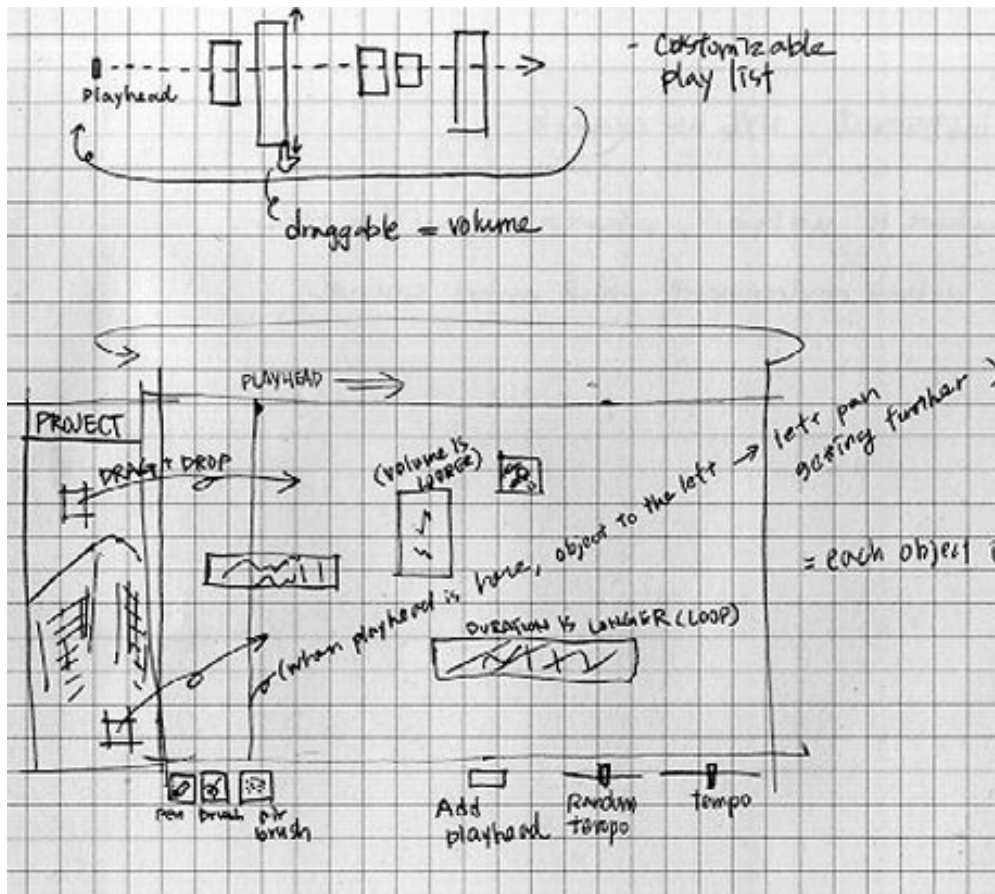 - Customizable
play list
playhead
draggable = volume
PLAYHEAD
PROJECT
DRAG + DROP
(volume is
(when playhead is here, object to the left → left pan
getting further
= each object
DURATION IS LONGER (LOOP)
pen
brush
air
brush
Add
playhead
Random
tempo
tempo